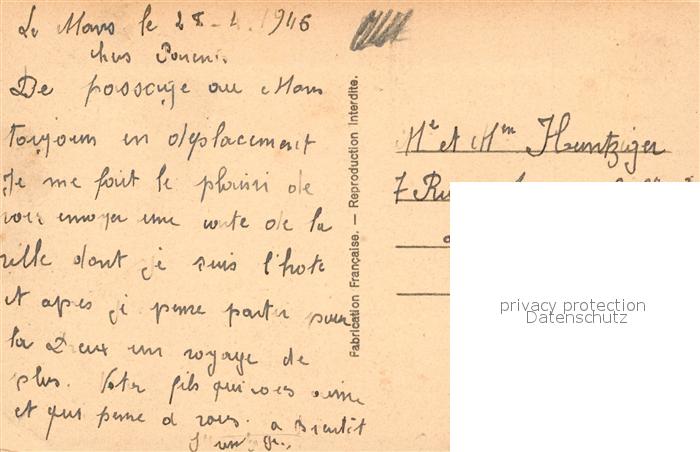 Le Mans le 28-1.1946
chers Parents
De passage au Mans
toujours en déplacement
Je me fait le plaisir de
vous envoyer une carte de la
ville dont je suis l'hote
et apres je pense partir pour
la Dreux un voyage de
plus. Votre fils qui vous aime
et qui pense a vous. a Bientôt
Fabrication Française. — Reproduction Interdite.
Mr et Mme Huntziger
7 Rue
privacy protection
Datenschutz